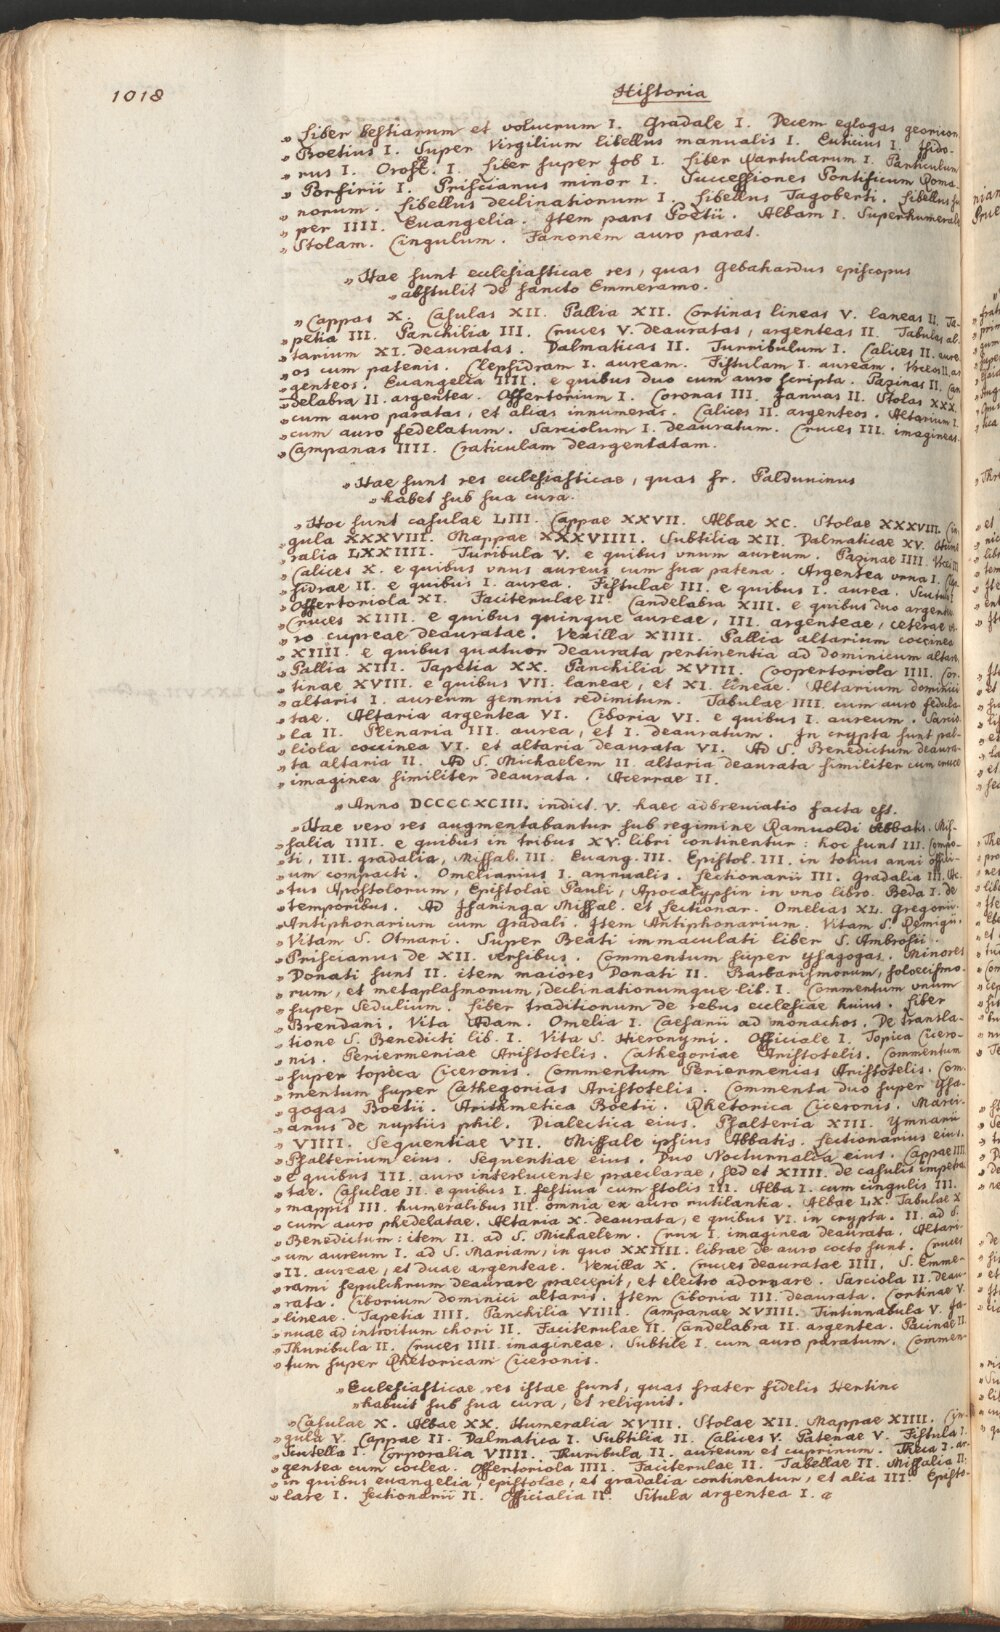 1018
Historia
» Liber bestiarum et volucrum I. Gradale I. Decem eglogas georicon
» Boetius I. Super Virgilium libellus manualis I. Euticius I. Isido-
» rus I. Orost. I. Liber super Job I. Liber Cartularum I. Particulum
» Porfirii I. Priscianus minor I. Successiones Pontificum Roma-
» norum. Libellus declinationum I. Libellus Tagoberti. Libellus su
» per IIII. Euangelia. Item pars Poetii. Albam I. Superhumerale
» Stolam. Cingulum. Fanonem auro paras.
» Hae sunt ecclesiasticae res, quas Gebahardus episcopus
» abstulit de sancto Emmeramo.
» Cappas X. Casulas XII. Pallia XII. Cortinas lineas V. laneas II. Ta-
» petia III. Panchilia III. Cruces V. deauratas, argenteas II. Tabulas al-
» tarium XI. deauratas. Dalmaticas II. Turribulum I. Calices II. aure
» os cum patenis. Clepsidram I. auream. Fistulam I. auream. Urceos II. ar
» genteos. Euangelia IIII. e quibus duo cum auro scripta. Pazinas II. Can
» delabra II. argentea. Offertorium I. Coronas III. Januas II. Stolas XXX.
» cum auro paratas, et alias innumeras. Calices II. argenteos. Altarium I.
» cum auro fedelatum. Sarciolum I. deauratum. Cruces III. imagineas.
» Campanas IIII. Craticulam deargentatam.
» Hae sunt res ecclesiasticae, quas fr. Palduninus
» habet sub sua cura.
» Hoc sunt casulae LIII. Cappae XXVII. Albae XC. Stolae XXXVIII. Cin
» gula XXXVIII. Mappae XXXVIIII. Subtilia XII. Dalmaticae XV.
» ralia LXXIIII. Turibula V. e quibus unum aureum. Pazinae IIII. Urcei III
» Calices X. e quibus unus aureus cum sua patena. Argentea urna I. Clep
» sidrae II. e quibus I. aurea. Fistulae III. e quibus I. aurea.
» Offertoriola XI. Faciterulae II. Candelabra XIII. e quibus duo argentea
» Cruces XIIII. e quibus quinque aureae, III. argenteae, ceterae ve
» ro cupreae deauratae. Vexilla XIIII. Pallia altarium coccinea
» XIIII. e quibus quatuor deaurata pertinentia ad dominicum altare
» Pallia XIII. Tapetia XX. Panchilia XVIII. Coopertoriola IIII. Cor-
» tinae XVIII. e quibus VII. laneae, et XI. lineae. Altarium dominici
» altaris I. aureum gemmis redimitum. Tabulae IIII. cum auro fedula-
» tae. Altaria argentea VI. Ciboria VI. e quibus I. aureum. Sarcio
» la II. Plenaria III. aurea, et I. deauratum. In crypta sunt pal-
» liola coccinea VI. et altaria deaurata VI. Ad S. Benedictum deaura-
» ta altaria II. Ad S. Michaelem II. altaria deaurata similiter cum cruce
» imaginea similiter deaurata. Acerrae II.
» Anno DCCCCXCIII. indict. V. haec adbreviatio facta est.
» Hae vero res augmentabantur sub regimine Ramuoldi Abbatis. Mis-
» salia IIII. e quibus in tribus XV. libri continentur: hoc sunt III. Compo-
» ti, III. gradalia, Missal. III. Euang. III. Epistol. III. in totius anni offici-
» um compacti. Omelianius I. annualis. Lectionarii III. Gradalia III. Ac-
» tus Apostolorum, Epistolae Pauli, Apocalypsin in uno libro. Beda I. de
» temporibus. Ad Isaninga Missal. et Lectionar. Omelias XL. Gregorii.
» Antiphonarium cum gradali. Item Antiphonarium. Vitam S. Remigii.
» Vitam S. Otmari. Super Beati immaculati liber S. Ambrosii.
» Priscianus de XII. versibus. Commentum super ysagogas. Minores
» Donati sunt II. item maiores Donati II. Barbarismorum, soloecismo-
» rum, et metaplasmorum, declinationumque lib. I. Commentum unum
» super Sedulium. Liber traditionum de rebus ecclesiae huius. Liber
» Brendani. Vita Adam. Omelia I. Caesarii ad monachos. De transla-
» tione S. Benedicti lib. I. Vita S. Hieronymi. Officiale I. Topica Cicero-
» nis. Periermeniae Aristotelis. Cathegoriae Aristotelis. Commentum
» super topica Ciceronis. Commentum Periermenias Aristotelis. Com-
» mentum super Cathegorias Aristotelis. Commenta duo super Ysa-
» gogas Boetii. Arithmetica Boetii. Rhetorica Ciceronis. Marci-
» anus de nuptiis phil. Dialectica eius. Psalteria XIII. Ymnarii
» VIIII. Sequentiae VII. Missale ipsius Abbatis. Lectionarius eius.
» Psalterium eius. Sequentiae eius. Duo Nocturnalia eius. Cappae IIII
» e quibus III. auro interlucente praeclarae, sed et XIIII. de casulis impetra
» tae. Casulae II. e quibus I. festiva cum stolis III. Alba I. cum cingulis III.
» mappis III. humeralibus III. omnia ex auro rutilantia. Albae LX. Tabulae X
» cum auro phedelatae. Altaria X. deaurata, e quibus VI. in crypta. II. ad S.
» Benedictum: item II. ad S. Michaelem. Crux I. imaginea deaurata. Altari-
» um aureum I. ad S. Mariam, in quo XXIIII. librae de auro cocto sunt. Cruces
» II. aureae, et duae argenteae. Vexilla X. Cruces deauratae IIII. S. Emme-
» rami sepulchrum deaurare praecepit, et electro adornare. Sarciola II. deau-
» rata. Ciborium dominici altaris. Item Ciboria III. deaurata. Cortinae V.
» lineae. Tapetia IIII. Panchilia VIIII. Campanae XVIIII. Tintinnabula V. Ja-
» nuae ad introitum chori II. Faciterulae II. Candelabra II. argentea. Pacinae II.
» Thuribula II. Cruces IIII. imagineae. Subtile I. cum auro paratum. Commen-
» tum super Rhetoricam Ciceronis.
» Ecclesiasticae res istae sunt, quas frater fidelis Hertinc
» habuit sub sua cura, et reliquit.
» Casulae X. Albae XX. Humeralia XVIII. Stolae XII. Mappae XIIII. Cin-
» gula V. Cappae II. Dalmatica I. Subtilia II. Calices V. Patenae V. Fistula I.
» Scutella I. Corporalia VIIII. Thuribula II. aureum et cuprinum. Theca I. ar-
» gentea cum coclea. Offertoriola IIII. Faciterulae II. Tabellae II. Missalia II.
» in quibus euangelia, epistolae, et gradalia continentur, et alia III. Episto-
» lare I. Lectionarii II. Officialia II. Situla argentea I.